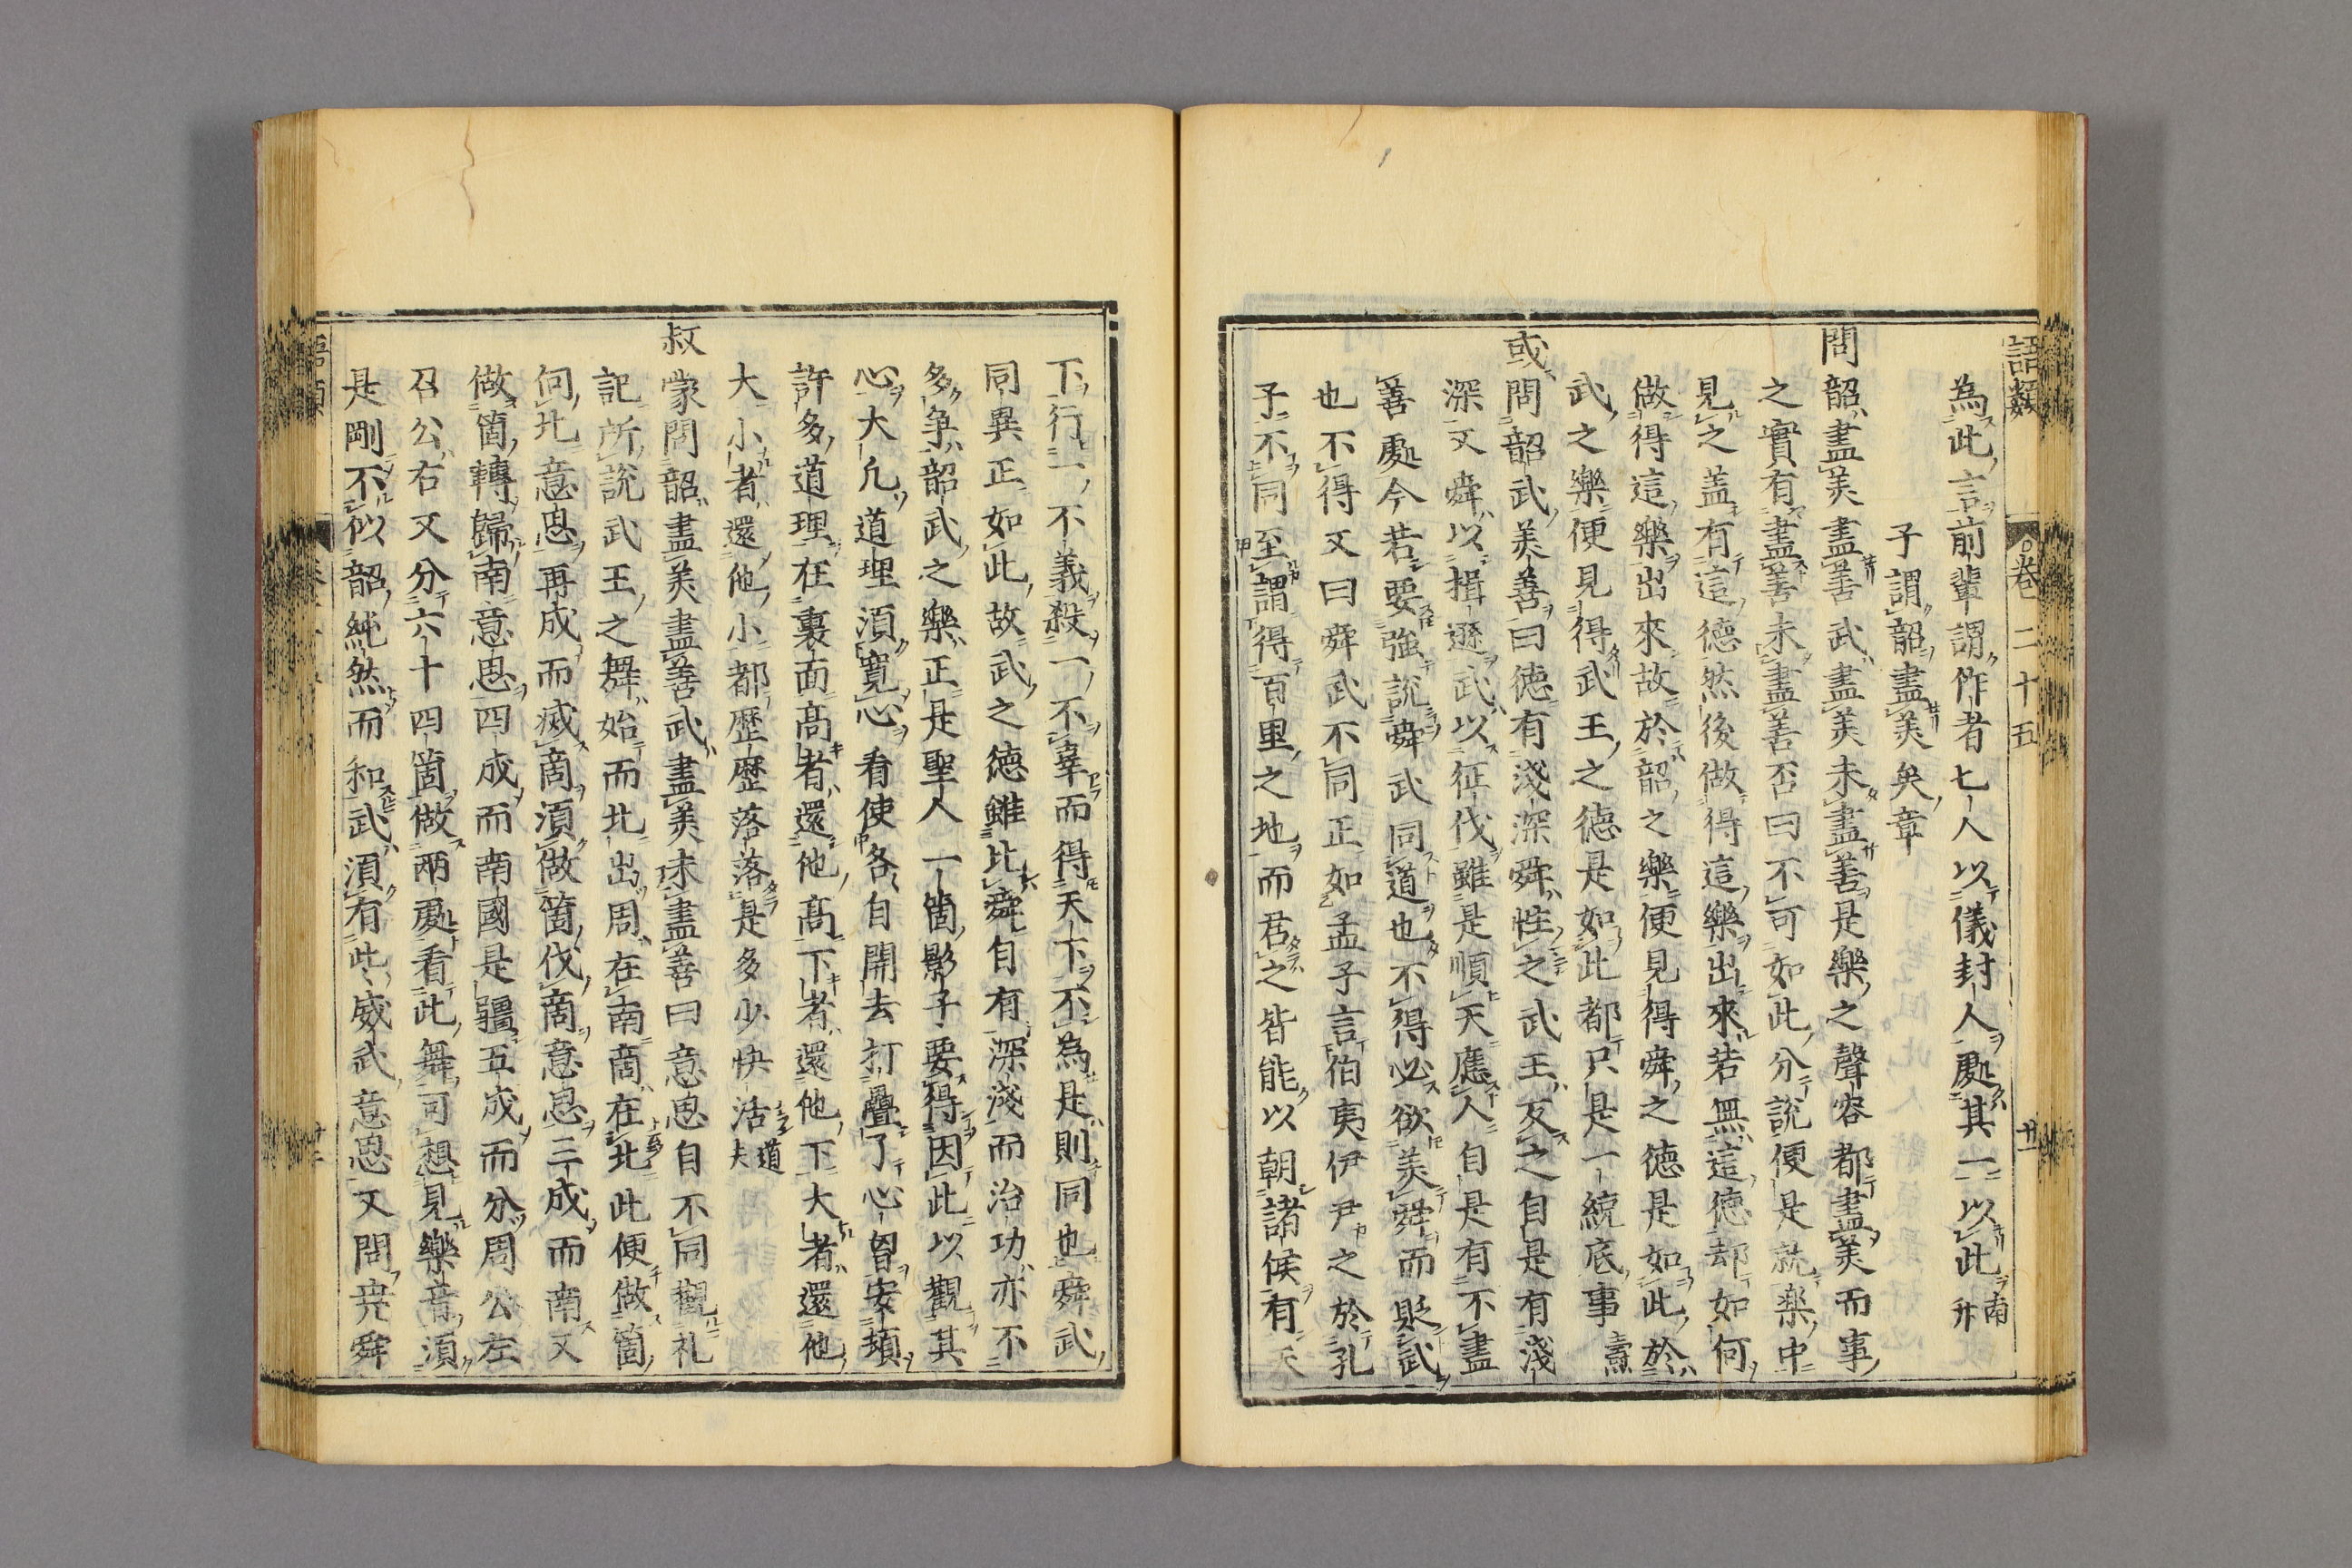 語類 卷二十五 廿一
為此言前輩謂作者七人以儀封人處其一以此 南升
子謂韶盡美矣章
問韶盡美盡善武盡美未盡善是樂之聲容都盡美而事
之實有盡善未盡善否曰不可如此分說便是就樂中
見之盖有這德然後做得這樂出來若無這德却如何
做得這樂出來故於韶之樂便見得舜之德是如此於
武之樂便見得武王之德是如此都只是一統底事 燾
或問韶武美善曰德有淺深舜性之武王反之自是有淺
深又舜以揖遜武以征伐雖是順天應人自是有不盡
善處今若要強說舜武同道也不得必欲美舜而貶武
也不得又曰舜武不同正如孟子言伯夷伊尹之於孔
子不同至謂得百里之地而君之皆能以朝諸侯有天
下行一不義殺一不辜而得天下不為是則同也舜武
同異正如此故武之德雖比舜自有深淺而治功亦不
多爭韶武之樂正是聖人一箇影子要得因此以觀其
心大凡道理須寬心看使各自開去打疊了心胷安頓
許多道理在裏面高者還他高下者還他下大者還他
大小者還他小都歷歷落落是多少快活 道夫
叔蒙問韶盡美盡善武盡美未盡善曰意思自不同觀礼
記所說武王之舞始而北出周在南商在北此便做箇
向北意思再成而滅商須做箇伐商意思三成而南又
做箇轉歸南意思四成而南國是疆五成而分周公左
召公右又分六十四箇做兩處看此舞可想見樂音須
是剛不似韶純然而和武須有此威武意思又問堯舜